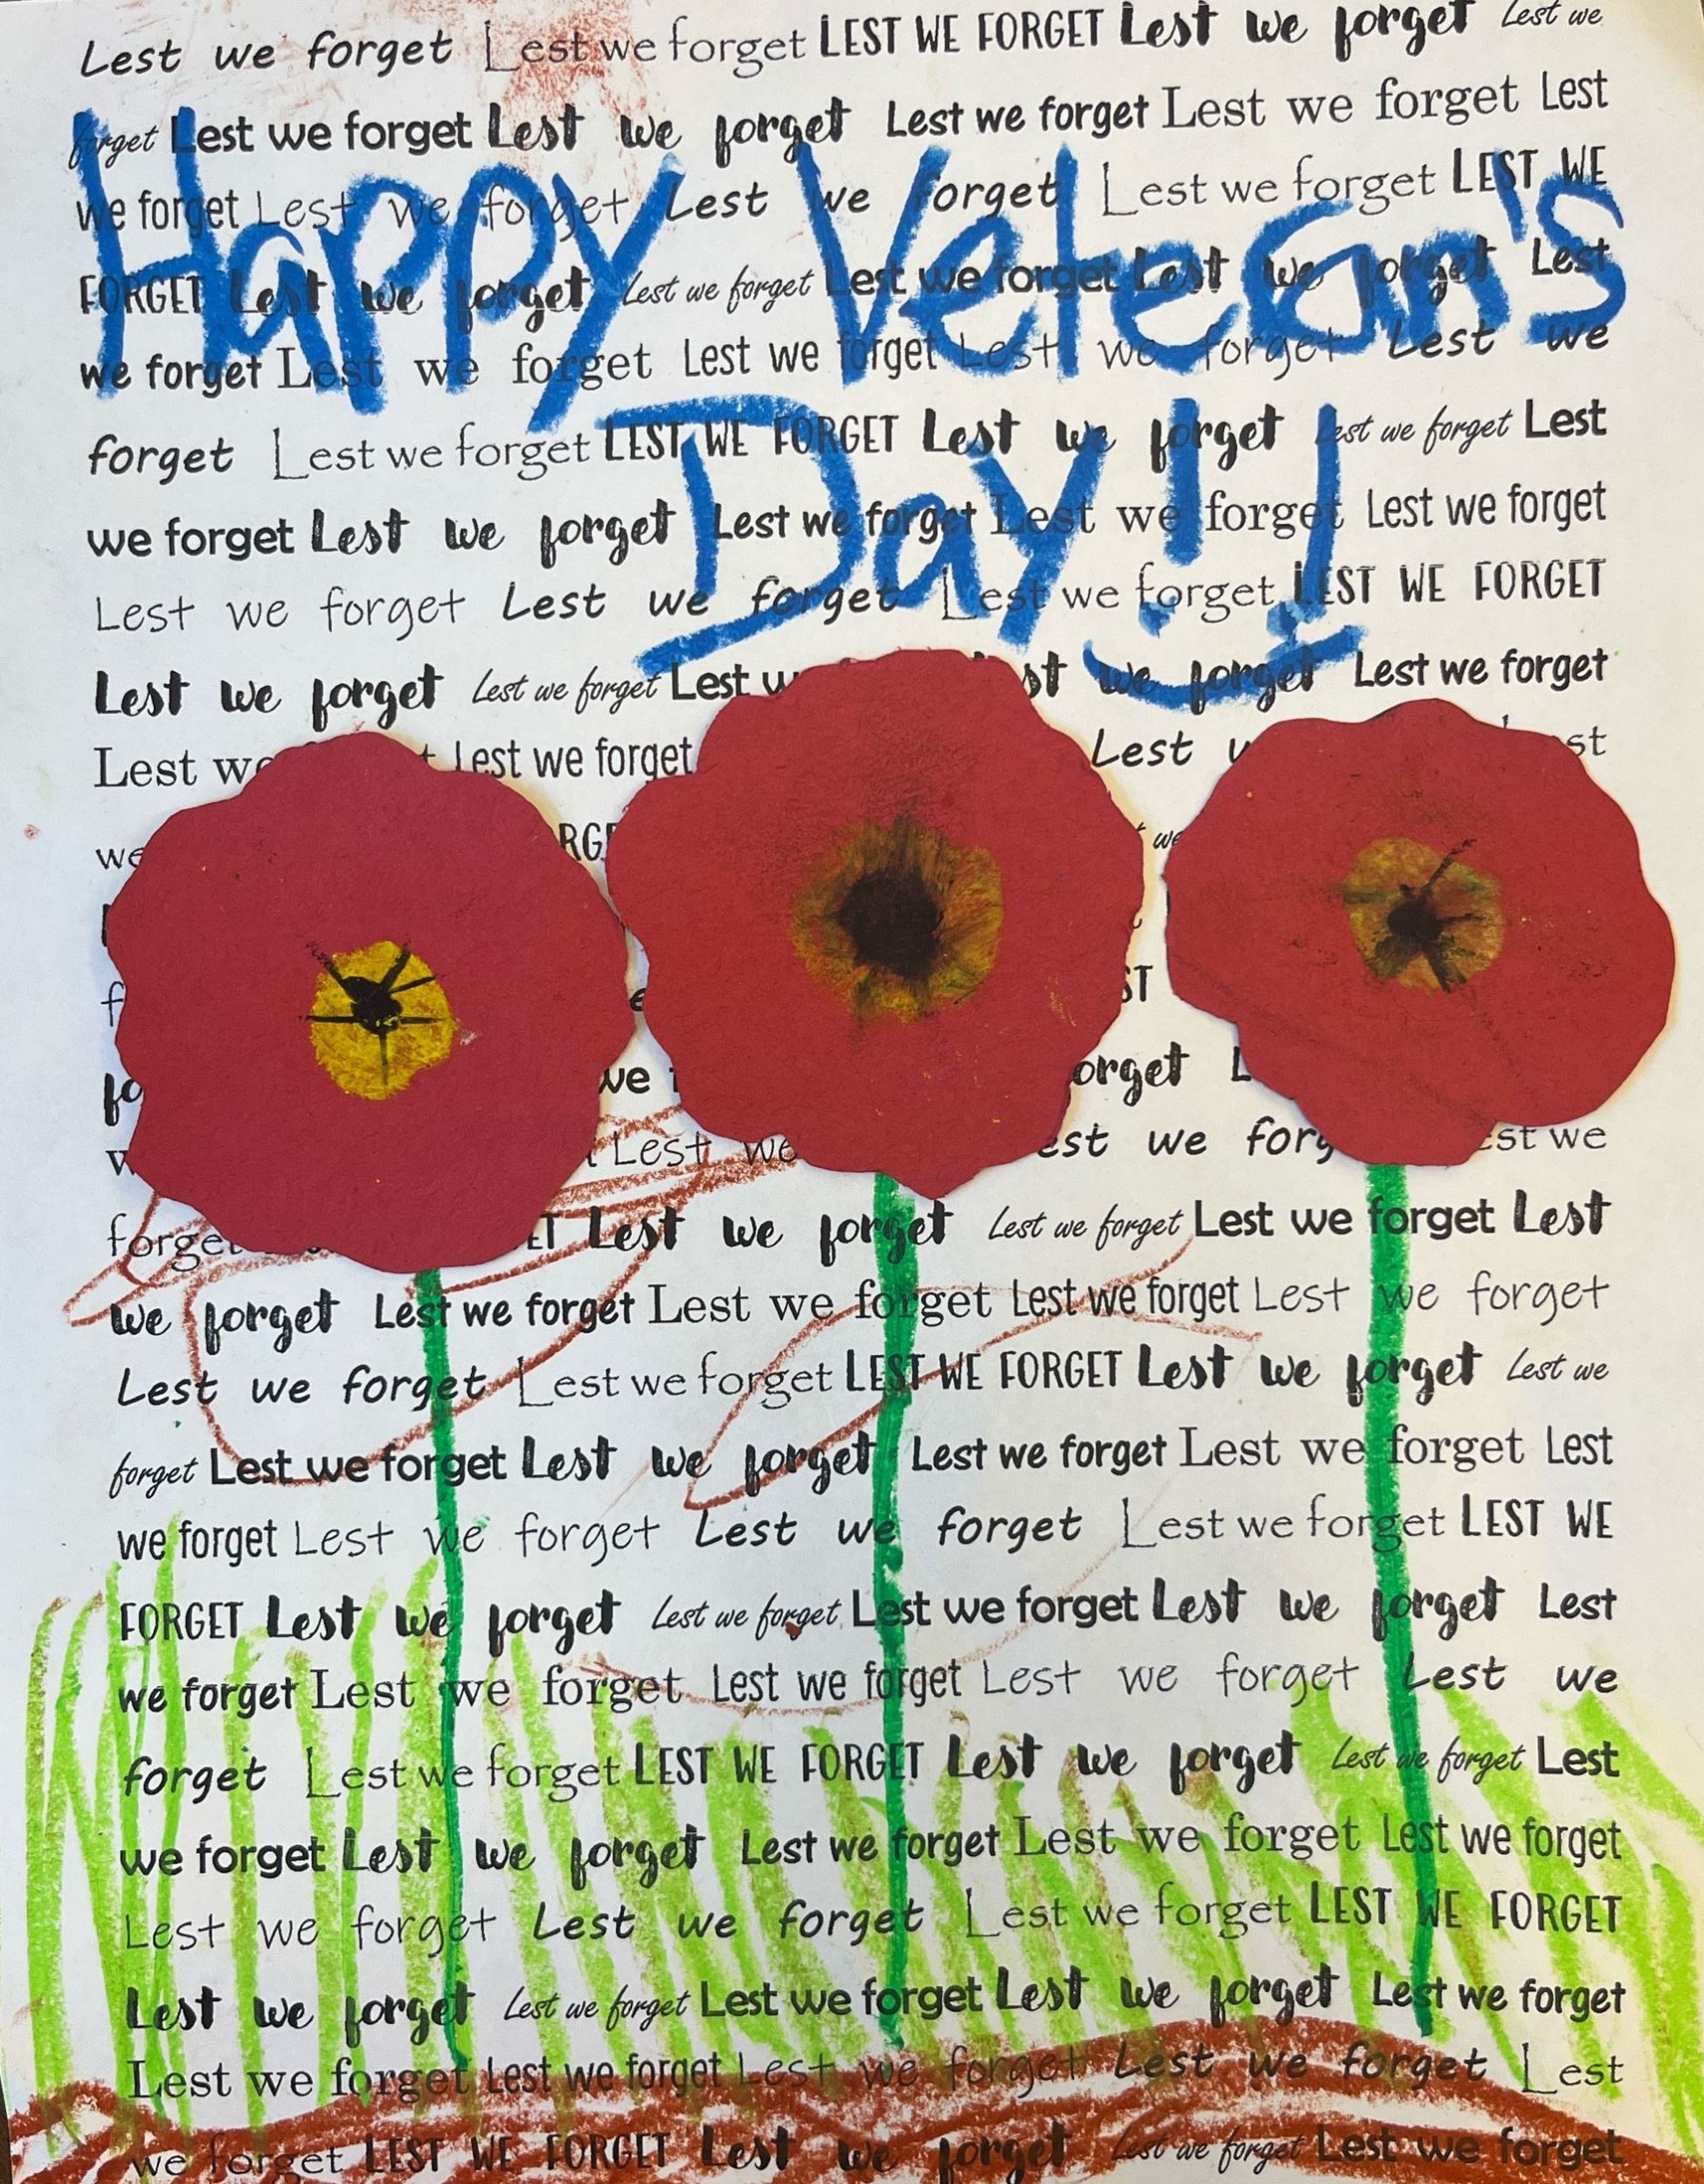 Lest we forget Lest we forget LEST WE FORGET Lest we forget Lest we
forget Lest we forget Lest we forget Lest we forget Lest we forget Lest
Happy Veteran's
we forget Lest we forget Lest we forget Lest we forget LEST WE
FORGET Lest we forget Lest we forget Lest we forget Lest we forget Lest
we forget Lest we forget Lest we forget Lest we forget Lest we
Day!!
forget Lest we forget LEST WE FORGET Lest we forget Lest we forget Lest
we forget Lest we forget Lest we forget Lest we forget Lest we forget
Lest we forget Lest we forget Lest we forget LEST WE FORGET
Lest we forget Lest we forget Lest we forget Lest we forget
Lest we Lest we forget Lest
we we
orget
Lest we est we forg est we
forget ET Lest we forget Lest we forget Lest we forget Lest
we forget Lest we forget Lest we forget Lest we forget Lest we forget
Lest we forget Lest we forget LEST WE FORGET Lest we forget Lest we
forget Lest we forget Lest we forget Lest we forget Lest we forget Lest
we forget Lest we forget Lest we forget Lest we forget LEST WE
FORGET Lest we forget Lest we forget Lest we forget Lest we forget Lest
we forget Lest we forget Lest we forget Lest we forget Lest we
forget Lest we forget LEST WE FORGET Lest we forget Lest we forget Lest
we forget Lest we forget Lest we forget Lest we forget Lest we forget
Lest we forget Lest we forget Lest we forget LEST WE FORGET
Lest we forget Lest we forget Lest we forget Lest we forget Lest we forget
Lest we forget Lest we forget Lest we forget Lest we forget Lest
we forget LEST WE FORGET Lest we forget Lest we forget Lest we forget